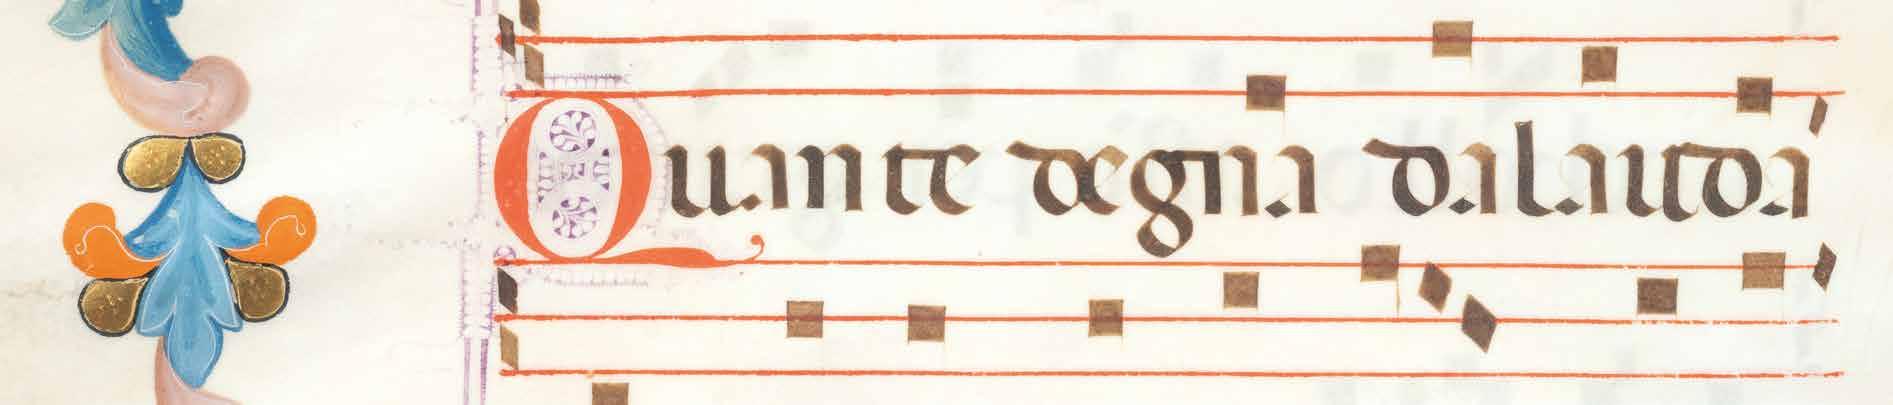 Quante degna dalauda